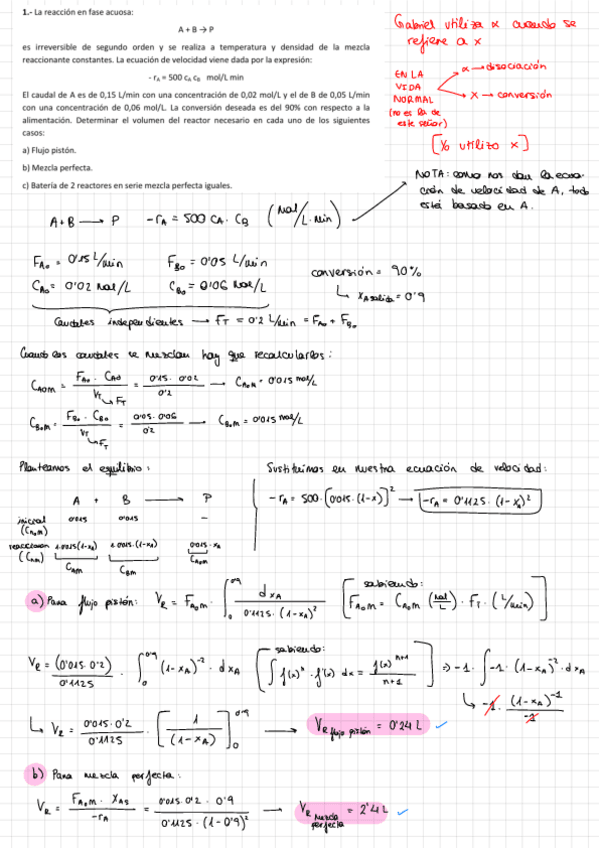 1.- La reacción en fase acuosa:
A + B → P
es irreversible de segundo orden y se realiza a temperatura y densidad de la mezcla
reaccionante constantes. La ecuación de velocidad viene dada por la expresión:
- rA = 500 cA cB mol/L min
El caudal de A es de 0,15 L/min con una concentración de 0,02 mol/L y el de B de 0,05 L/min
con una concentración de 0,06 mol/L. La conversión deseada es del 90% con respecto a la
alimentación. Determinar el volumen del reactor necesario en cada uno de los siguientes
casos:
a) Flujo pistón.
b) Mezcla perfecta.
c) Batería de 2 reactores en serie mezcla perfecta iguales.
Gabriel utiliza α cuando se
refiere a x
EN LA VIDA NORMAL (no es la de este señor)
α → disociación
x → conversión
[Yo utilizo x]
NOTA: como nos dan la ecua
ción de velocidad de A, todo
está basado en A.
A + B → P   -rA = 500 CA · CB (mol/L·min)
FA0 = 0'15 L/min   FB0 = 0'05 L/min
CA0 = 0'02 mol/L   CB0 = 0'06 mol/L
conversión = 90%
↳ xA salida = 0'9
Caudales independientes → FT = 0'2 L/min = FA0 + FB0
Cuando los caudales se mezclan hay que recalcularlos:
CA0M = FA0 · CA0 / VT = 0'15 · 0'02 / 0'2 → CA0M = 0'015 mol/L
↳ FT
CB0M = FB0 · CB0 / VT = 0'05 · 0'06 / 0'2 → CB0M = 0'015 mol/L
↳ FT
Planteamos el equilibrio:
A + B → P
inicial (C0M) 0'015 0'015 -
reacción (CM) 0'015(1-xA) 0'015·(1-xA) 0'015·xA
CAM CBM
Sustituimos en nuestra ecuación de velocidad:
-rA = 500·(0'015·(1-x))² → -rA = 0'1125·(1-xA)²
a) Para flujo pistón: VR = FA0M · ∫₀^0'9 dxA / 0'1125·(1-xA)² [sabiendo: FA0M = CA0M (mol/L) · FT · (L/min)]
VR = (0'015·0'2) / 0'1125 · ∫₀^0'9 (1-xA)⁻² · dxA [sabiendo: ∫ f(x)ⁿ · f'(x) dx = f(x)ⁿ⁺¹ / n+1] ⇒ -1·∫-1·(1-xA)⁻²·dxA
↳ -1 · (1-xA)⁻¹ / -1
↳ VR = 0'015·0'2 / 0'1125 · [1 / (1-xA)]₀^0'9 → VR flujo pistón = 0'24 L ✓
b) Para mezcla perfecta:
VR = FA0M · XAS / -rA = 0'015·0'2·0'9 / 0'1125·(1-0'9)² → VR mezcla perfecta = 2'4 L ✓